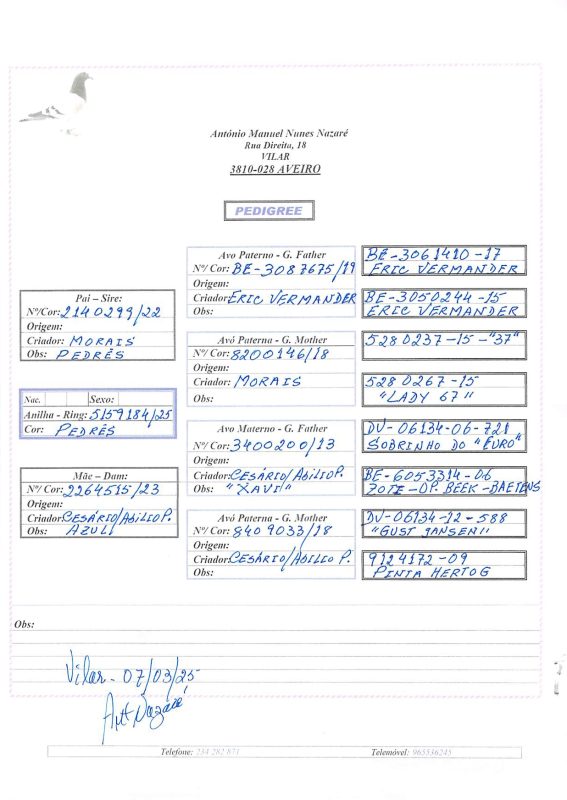 António Manuel Nunes Nazaré
Rua Direita, 18
VILAR
3810-028 AVEIRO
PEDIGREE
Pai – Sire:
Nº/Cor: 2140299/22
Origem:
Criador: MORAIS
Obs: PEDRÊS
Nac. Sexo:
Anilha - Ring: 5159184/25
Cor: PEDRÊS
Mãe – Dam:
Nº/Cor: 2264515/23
Origem:
Criador: CESÁRIO/ABILIO P.
Obs: AZUL
Avo Paterno - G. Father
Nº/ Cor: BE-3087675/19
Origem:
Criador: ERIC VERMANDER
Obs:
Avó Paterna - G. Mother
Nº/ Cor: 8200146/18
Origem:
Criador: MORAIS
Obs:
Avo Materno - G. Father
Nº/ Cor: 3400200/13
Origem:
Criador: CESÁRIO/ABILIO P.
Obs: "XAVI"
Avó Paterna - G. Mother
Nº/ Cor: 8409033/18
Origem:
Criador: CESÁRIO/ABILIO P.
Obs:
BE-3061410-17
ERIC VERMANDER
BE-3050244-15
ERIC VERMANDER
5280237-15-"37"
5280267-15
"LADY 67"
DV-06134-06-721
SOBRINHO DO "EURO"
BE-6053314-06
ZOTE-OP. BEEK-BAETENS
DV-06134-12-588
"GUST JANSEN"
9124172-09
PINTA HERTOG
Obs:
Vilar - 07/03/25
Antº Nazaré
Telefone: 234 282 871
Telemóvel: 965536245